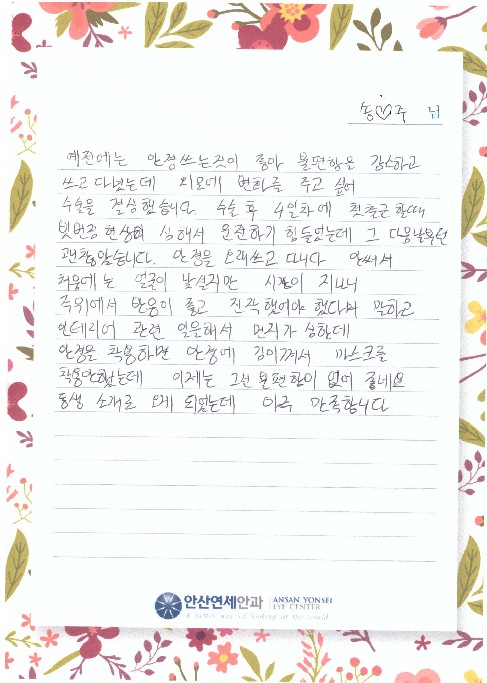 송♡주 님
예전에는 안경쓰는것이 좋아 불편함은 감수하고
쓰고 다녔는데 외모에 변화를 주고 싶어
수술을 결심했습니다. 수술 후 4일차에 첫출근 할때
빛번짐 현상이 심해서 운전하기 힘들었는데 그 다음날부턴
괜찮았습니다. 안경을 오래쓰고 다니다 안써서
처음에는 얼굴이 낯설지만 시간이 지나니
주위에서 반응이 좋고 진작 했어야 했다며 말하고
인테리어 관련 일을해서 먼지가 심한데
안경을 착용하면 안경에 김이껴서 마스크를
착용안했는데 이제는 그런 불편함이 없어 좋네요
동생 소개로 오게 되었는데 아주 만족합니다
안산연세안과 ANSAN YONSEI
EYE CENTER
A better way of looking at the world